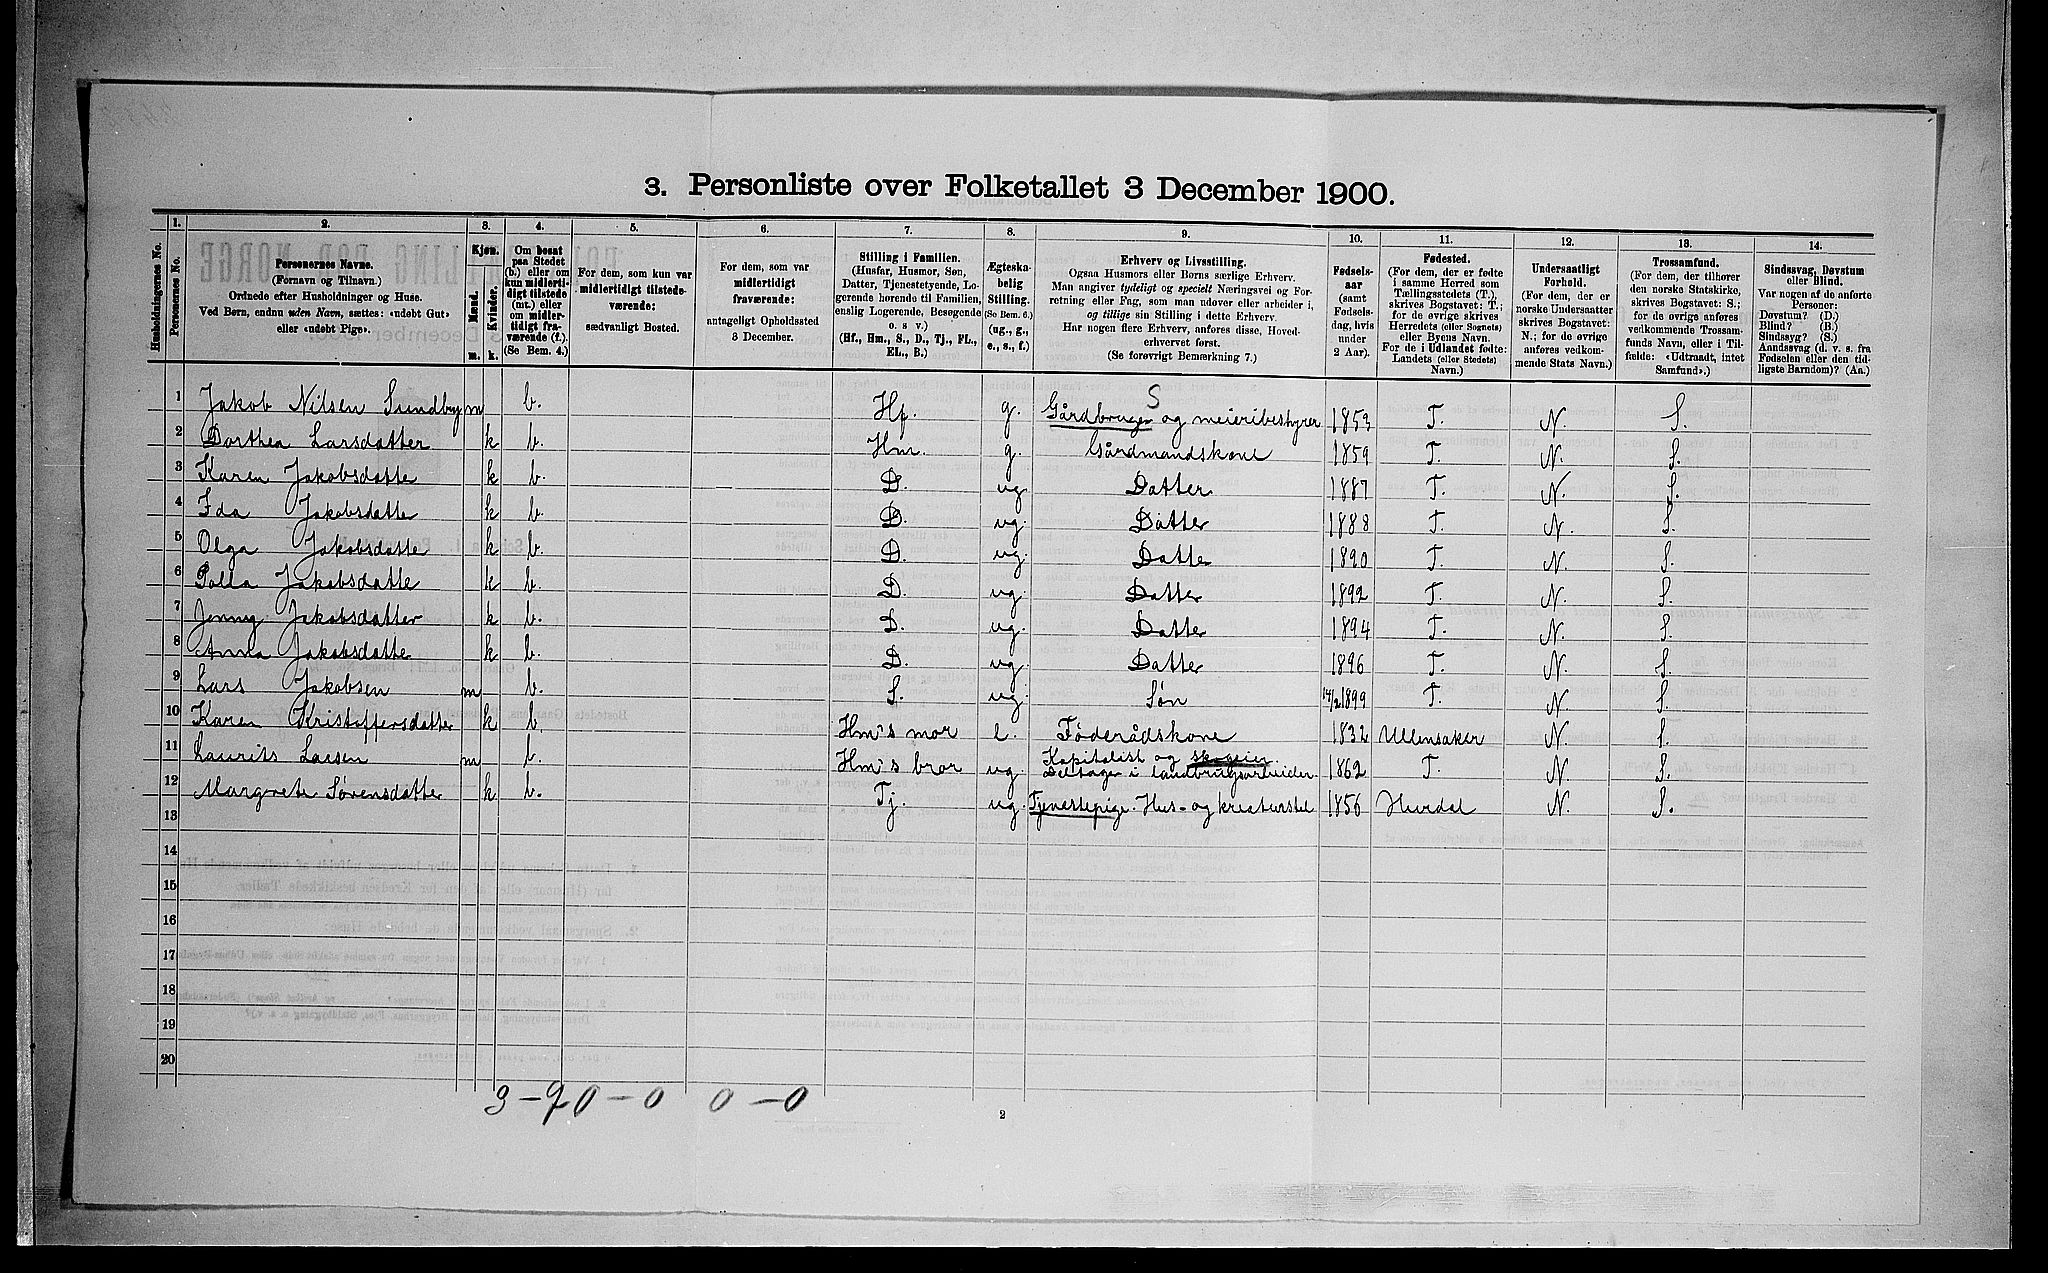 3. Personliste over Folketallet 3 December 1900.
Husholdningernes No.
1.
Personernes No.
2.
Personernes Navne.
(Fornavn og Tilnavn.)
Ordnede efter Husholdninger og Huse.
Ved Børn, endnu uden Navn, sættes: «udøbt Gut»
eller «udøbt Pige».
3.
Kjøn.
Mænd.
Kvinder.
m.
k.
4.
Om bosat
paa Stedet
(b.) eller om
kun midlerti-
digt tilstede
(mt.) eller
om midler-
tidigt fra-
værende (f.).
(Se Bem. 4.)
5.
For dem, som kun var
midlertidigt tilstede-
værende:
sædvanligt Bosted.
6.
For dem, som var
midlertidigt
fraværende:
antageligt Opholdssted
3 December.
7.
Stilling i Familien.
(Husfar, Husmor, Søn,
Datter, Tjenestetyende, Lo-
gerende hørende til Familien,
enslig Logerende, Besøgende
o. s v.)
(Hf., Hm., S., D., Tj., FL.,
EL., B.)
8.
Ægteska-
belig
Stilling.
(Se Bem. 6.)
(ug., g.,
e., s., f.)
9.
Erhverv og Livsstilling.
Ogsaa Husmors eller Børns særlige Erhverv.
Man angiver tydeligt og specielt Næringsvei og For-
retning eller Fag, som man udøver eller arbeider i,
og tillige sin Stilling i dette Erhverv.
Har nogen flere Erhverv, anføres disse, Hoved-
erhvervet først.
(Se forøvrigt Bemærkning 7.)
10.
Fødsels-
aar
(samt
Fødsels-
dag, hvis
under
2 Aar).
11.
Fødested.
(For dem, der er fødte
i samme Herred som
Tællingsstedets (T.),
skrives Bogstavet: T;
for de øvrige skrives
Herredets (eller Sognets)
eller Byens Navn.
For de i Udlandet fødte:
Landets (eller Stedets)
Navn.)
12.
Undersaatligt
Forhold.
(For dem, der er
norske Undersaatter
skrives Bogstavet:
N.; for de øvrige
anføres vedkom-
mende Stats Navn.)
13.
Trossamfund.
(For dem, der tilhører
den norske Statskirke,
skrives Bogstavet: S.;
for de øvrige anføres
vedkommende Trossam-
funds Navn, eller i Til-
fælde: «Udtraadt, intet
Samfund».)
14.
Sindssvag, Døvstum
eller Blind.
Var nogen af de anførte
Personer:
Døvstum? (D.)
Blind? (B.)
Sindssyg? (S.)
Aandssvag (d. v. s. fra
Fødselen eller den tid-
ligste Barndom)? (Aa.)
S
1 Jakob Nilsen Sundby m b. Hf. g. Gårdbruger og meieribestyrer 1853 T. N. S.
2 Dorthea Larsdatter k b. Hm. g. Gårdmandskone 1859 T. N. S.
3 Karen Jakobsdatte k b. D. ug Datter 1887 T. N. S.
4 Ida Jakobsdatte k b. D. ug. Datter 1888 T. N. S.
5 Olga Jakobsdatte k b. D. ug. Datte 1890 T. N. S.
6 Palla Jakobsdatte k b. D. ug. Datter 1892 T. N. S.
7 Jenny Jakobsdatter k b. D. ug. Datte 1894 T. N. S.
8 Anna Jakobsdatte k b. D. ug. Datte 1896 T. N. S.
9 Lars Jakobsen m b. S. ug. Søn 14/2 1899 T. N. S.
10 Karen Kristoffersdatter k b. Hm's mor e. Føderådskone 1832 Ullensaker N. S.
11 Laurits Larsen m b. Hm's bror ug. Kapitalist og skogeier
Deltager i landbrugsarbeider 1862 T. N. S.
12 Margrete Sørensdatte k b. Tj. ug. Tjenestepige. Hus- og kreaturstel 1856 Hurdal N. S.
13
14
15
16
17
18
19
20
3 – 9 0 – 0 0 – 0
2